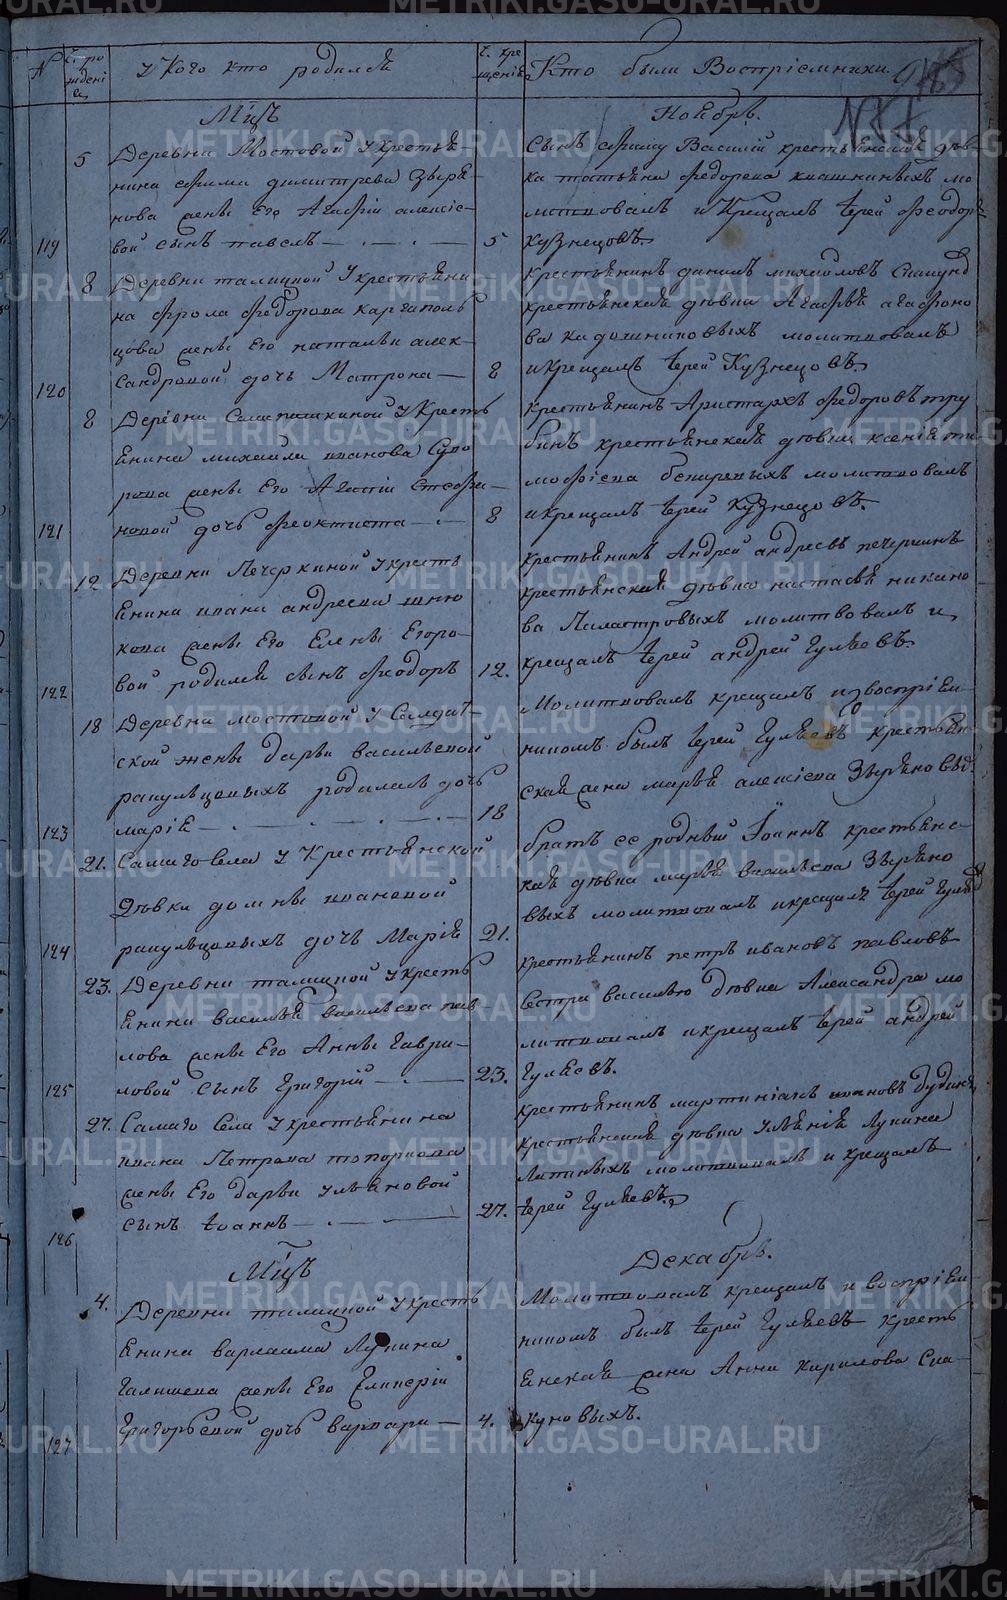 №
Ч. рожденiя
У Кого кто родился
Ч. крещенiя
Кто были Воспрiемники.
Мцъ
Ноября.
5
Деревни Мостовой У крестья-
нина
димитрева Зыря-
нова жены Его Агафiи алексiе-
вой сынъ павелъ
119
5
Василiй крестьянская дѣв-
ка татьяна федорова
мо-
литвовалъ и Крещалъ Iерей феодоръ
Кузнецовъ
8
Деревни талицкой У крестьяни
на фрола федорова каргаполь
цова жены Его натальи алек-
сандровой дочь Матрона
120
8
крестьянинъ данилъ михайловъ
крестьянская дѣвка Агафья агафоно
ва кадошниковыхъ молитвовалъ
и крещалъ Iерей Кузнецовъ
8
Деревни
У кресть
янина михаила иванова Суво
рова жены Его Агафiи Стефа-
новой дочь феоктиста
121
8
крестьянинъ Аристархъ федоровъ тру
бинъ крестьянская дѣвка ксенiя ти
мофiева
молитвовалъ
и крещалъ Iерей Кузнецовъ.
12
Деревни Печеркиной У кресть
янина ивана андреева
жены Его Елены Егоро-
вой родился сынъ феодоръ
122
12.
крестьянинъ Андрей андреевъ печеркинъ
крестьянская дѣвка настасья никано
ва Пиластровыхъ молитвовалъ и
крещалъ Iерей андрей Гуляевъ
18
Деревни мостовой У Солдат-
ской жены дарьи васильевой
ракульцовыхъ родилась дочь
марiя
123
18
Молитвовалъ крещалъ и воспрiем
никомъ былъ Iерей Гуляевъ крестьян
ская жена марья алексiева Зыряновыхъ
21.
Самаго Села У Крестьянской
Дѣвки домны ивановой
ракульцовыхъ дочь Марiя
124
21.
братъ ее родный Iоаннъ крестьянс-
кая дѣвка марья васильева Зыряно
выхъ молитвовалъ и крещалъ Iерей Гуляевъ
23.
Деревни талицкой У кресть
янина василья васильева пав
лова жены Его Анны Гаври-
ловой сынъ Григорiй
125
23.
крестьянинъ петръ ивановъ павловъ
сестра василью дѣвка Александра мо
литвовалъ и крещалъ Iерей андрей
Гуляевъ.
27.
Самаго Села У крестьянина
ивана Петрова топоркова
жены Его дарьи ульяновой
сынъ Iоаннъ
126
27.
крестьянинъ мартинiанъ ивановъ дудинъ
крестьянская дѣвка ульянiя Лукина
молитвовалъ и крещалъ
Iерей Гуляевъ
Мцъ
Декабря.
4.
Деревни талицкой У кресть
янина варлаама Лукина
Галишева жены Его Гликерiи
Григорьевой дочь варвара
127
4.
Молитвовалъ крещалъ и воспрiем
никомъ былъ Iерей Гуляевъ кресть
янская жена Анна кирилова Ска-
куновыхъ.
METRIKI.GASO-URAL.RU